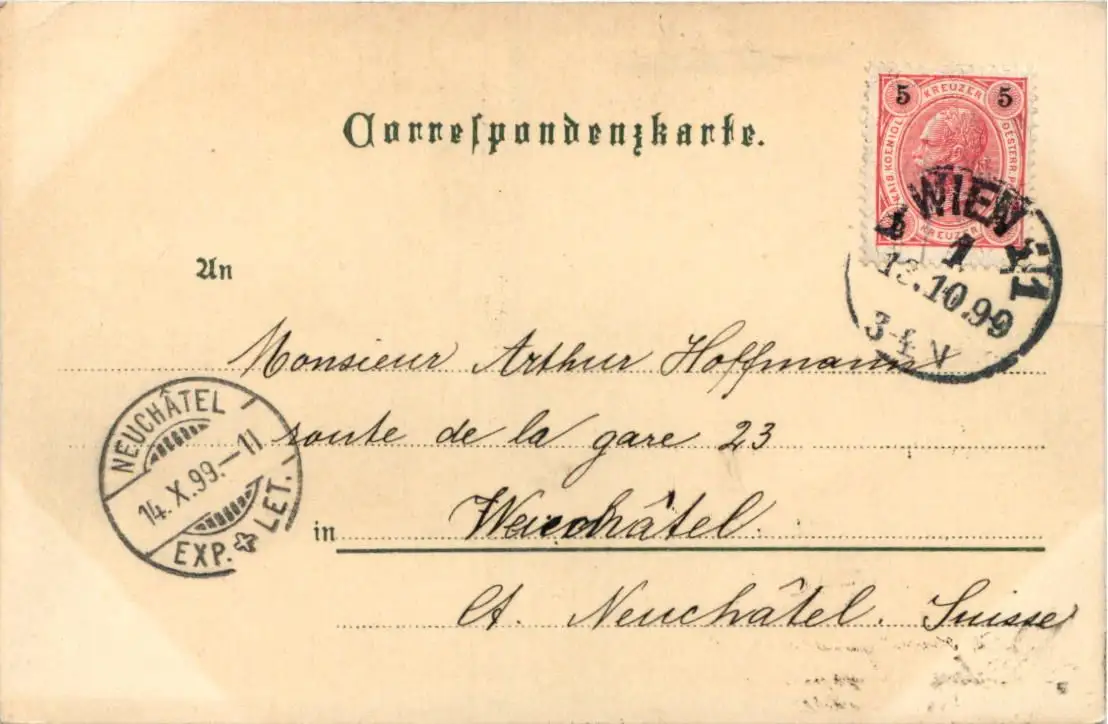 Correspondenzkarte.
5 KREUZER 5
KAIS KOENIGL OESTERR. P
KREUZER
WIEN 1
1
13.10.99
3-4 V
An
Monsieur Arthur Hoffmann
route de la gare 23
in Neuchâtel.
Ct. Neuchâtel. Suisse
NEUCHÂTEL
14.X.99.–11
EXP. LET.